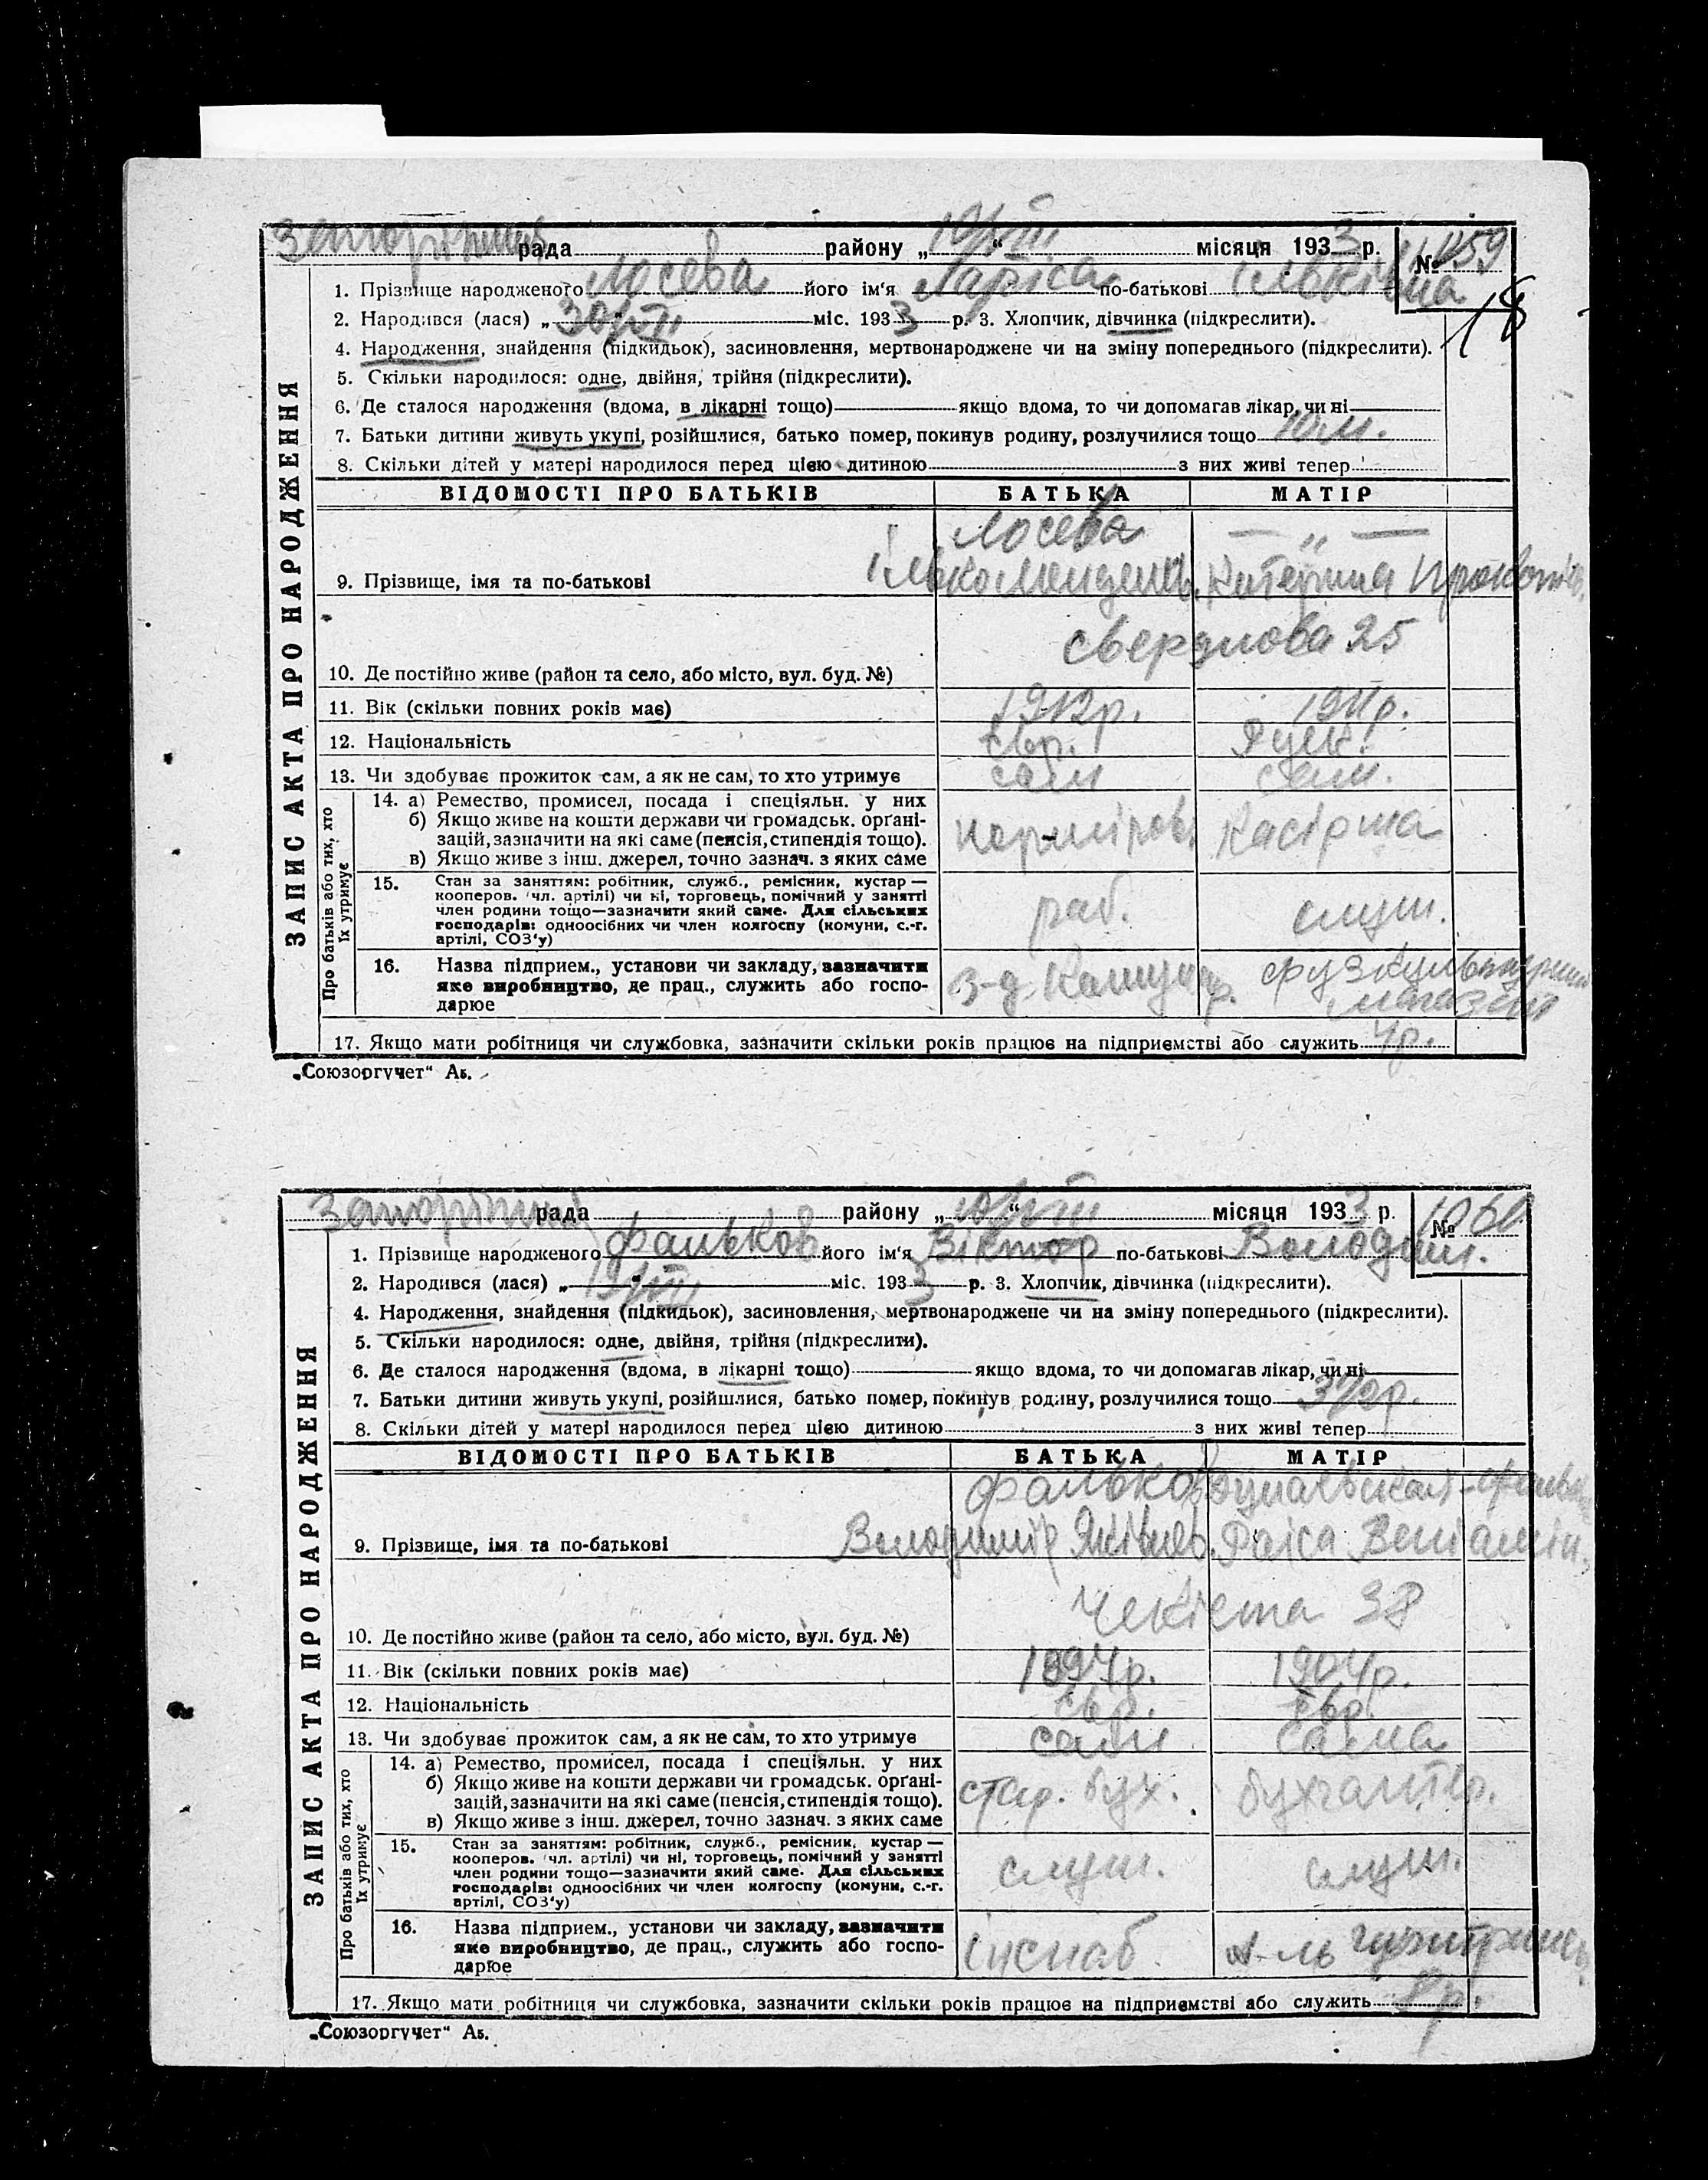 рада района „10/VIII“ місяця 1933 р. № 1059
1. Прізвище народженого Лосева його ім'я Ларіса по-батькові
18
2. Народився (лася) „30/VII“ міс. 1933 р. 3. Хлопчик, дівчинка (підкреслити).
4. Народження, знайдення (підкидьок), засиновлення, мертвонароджене чи на зміну попереднього (підкреслити).
5. Скільки народилося: одне, двійня, трійня (підкреслити).
6. Де сталося народження (вдома, в лікарні тощо) якщо вдома, то чи допомагав лікар, чи ні
7. Батьки дитини живуть укупі, розійшлися, батько помер, покинув родину, розлучилися тощо
8. Скільки дітей у матері народилося перед цією дитиною з них живі тепер
ЗАПИС АКТА ПРО НАРОДЖЕННЯ
ВІДОМОСТІ ПРО БАТЬКІВ БАТЬКА МАТІР
Лосева — „ —
9. Прізвище, імя та по-батькові Катерина
Свердлова 25
10. Де постійно живе (район та село, або місто, вул. буд. №)
11. Вік (скільки повних років має) 1912р. 1911р.
12. Національність євр. Руск.
13. Чи здобуває прожиток сам, а як не сам, то хто утримує сам сам.
Про батьків або тих, хто
їх утримує
14. а) Ремество, промисел, посада і спеціяльн. у них
б) Якщо живе на кошти держави чи громадськ. орґані-
зацій, зазначити на які саме (пенсія, стипендія тощо). Касірша
в) Якщо живе з інш. джерел, точно зазнач. з яких саме
15. Стан за заняттям: робітник, служб., ремісник, кустар —
кооперов. (чл. артілі) чи ні, торговець, помічний у занятті
член родини тощо—зазначити який саме. Для сільських раб. служ.
господарів: одноосібних чи член колгоспу (комуни, с.-г.
артілі, СОЗ'у)
16. Назва підприєм., установи чи закладу, зазначити
яке виробництво, де прац., служить або госпо- з-д
дарює магазін
17. Якщо мати робітниця чи службовка, зазначити скільки років працює на підприємстві або служить 4р.
„Союзоргучет“ Аз.
рада району „10/VIII“ місяця 1933 р. № 1060
1. Прізвище народженого Фальков його ім'я Віктор по-батькові Володим.
2. Народився (лася) міс. 1933 р. 3. Хлопчик, дівчинка (підкреслити).
4. Народження, знайдення (підкидьок), засиновлення, мертвонароджене чи на зміну попереднього (підкреслити).
5. Скільки народилося: одне, двійня, трійня (підкреслити).
6. Де сталося народження (вдома, в лікарні тощо) якщо вдома, то чи допомагав лікар, чи ні
7. Батьки дитини живуть укупі, розійшлися, батько помер, покинув родину, розлучилися тощо
8. Скільки дітей у матері народилося перед цією дитиною з них живі тепер
ЗАПИС АКТА ПРО НАРОДЖЕННЯ
ВІДОМОСТІ ПРО БАТЬКІВ БАТЬКА МАТІР
Фальков
9. Прізвище, імя та по-батькові Володимір Яківлев. Раіса Веніамін.
Чекіста 38
10. Де постійно живе (район та село, або місто, вул. буд. №)
11. Вік (скільки повних років має) 1894р. 1904р.
12. Національність євр. євр.
13. Чи здобуває прожиток сам, а як не сам, то хто утримує сам сама
Про батьків або тих, хто
їх утримує
14. а) Ремество, промисел, посада і спеціяльн. у них
б) Якщо живе на кошти держави чи громадськ. орґані- стар. бух. бухгалтер.
зацій, зазначити на які саме (пенсія, стипендія тощо).
в) Якщо живе з інш. джерел, точно зазнач. з яких саме
15. Стан за заняттям: робітник, служб., ремісник, кустар —
кооперов. (чл. артілі) чи ні, торговець, помічний у занятті
член родини тощо—зазначити який саме. Для сільських служ. служ.
господарів: одноосібних чи член колгоспу (комуни, с.-г.
артілі, СОЗ'у)
16. Назва підприєм., установи чи закладу, зазначити
яке виробництво, де прац., служить або госпо- інснаб
дарює
17. Якщо мати робітниця чи службовка, зазначити скільки років працює на підприємстві або служить
„Союзоргучет“ Аз.